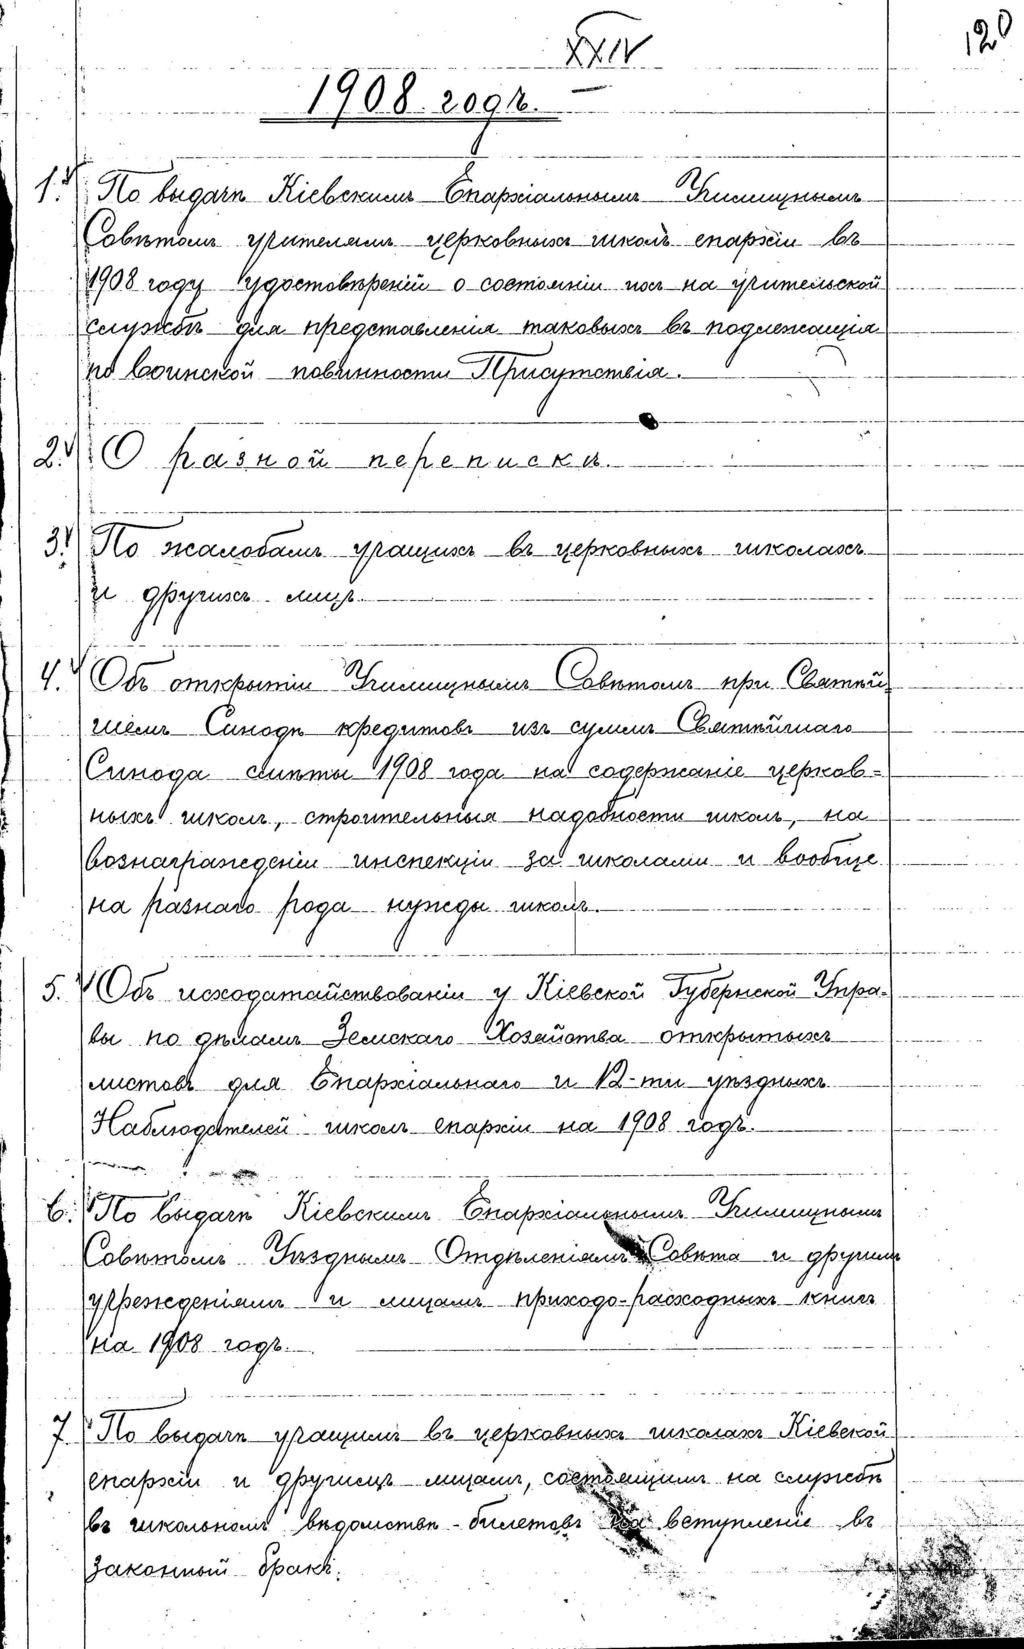 XXIV
120
1908 годъ.
1. По выдачѣ Кіевскимъ Епархіальнымъ Училищнымъ
Совѣтомъ учителямъ церковныхъ школъ епархіи въ
1908 году удостовѣреній о состояніи ихъ на учительской
службѣ для представленія таковыхъ въ подлежащія
по воинской повинности Присутствія.
2. О разной перепискѣ.
3. По жалобамъ учащихъ въ церковныхъ школахъ
и другихъ лицъ.
4. Объ открытіи Училищнымъ Совѣтомъ при Святѣй-
шемъ Синодѣ кредитовъ изъ суммъ Святѣйшаго
Синода смѣты 1908 года на содержаніе церков=
ныхъ школъ, строительныя надобности школъ, на
вознагражденіи инспекціи за школами и вообще
на разнаго рода нужды школъ.
5. Объ исходатайствованіи у Кіевской Губернской Упра-
вы по дѣламъ Земскаго Хозяйства открытыхъ
листовъ для Епархіальнаго и 12-ти уѣздныхъ
Наблюдателей школъ епархіи на 1908 годъ.
6. По выдачѣ Кіевскимъ Епархіальнымъ Училищнымъ
Совѣтомъ Уѣзднымъ Отдѣленіямъ Совѣта и другимъ
учрежденіямъ и лицамъ приходо-расходныхъ книгъ
на 1908 годъ.
7. По выдачѣ учащимъ въ церковныхъ школахъ Кіевской
епархіи и другимъ лицамъ, состоящимъ на службѣ
въ школьномъ вѣдомствѣ - билетовъ на вступленіе въ
законный бракъ.